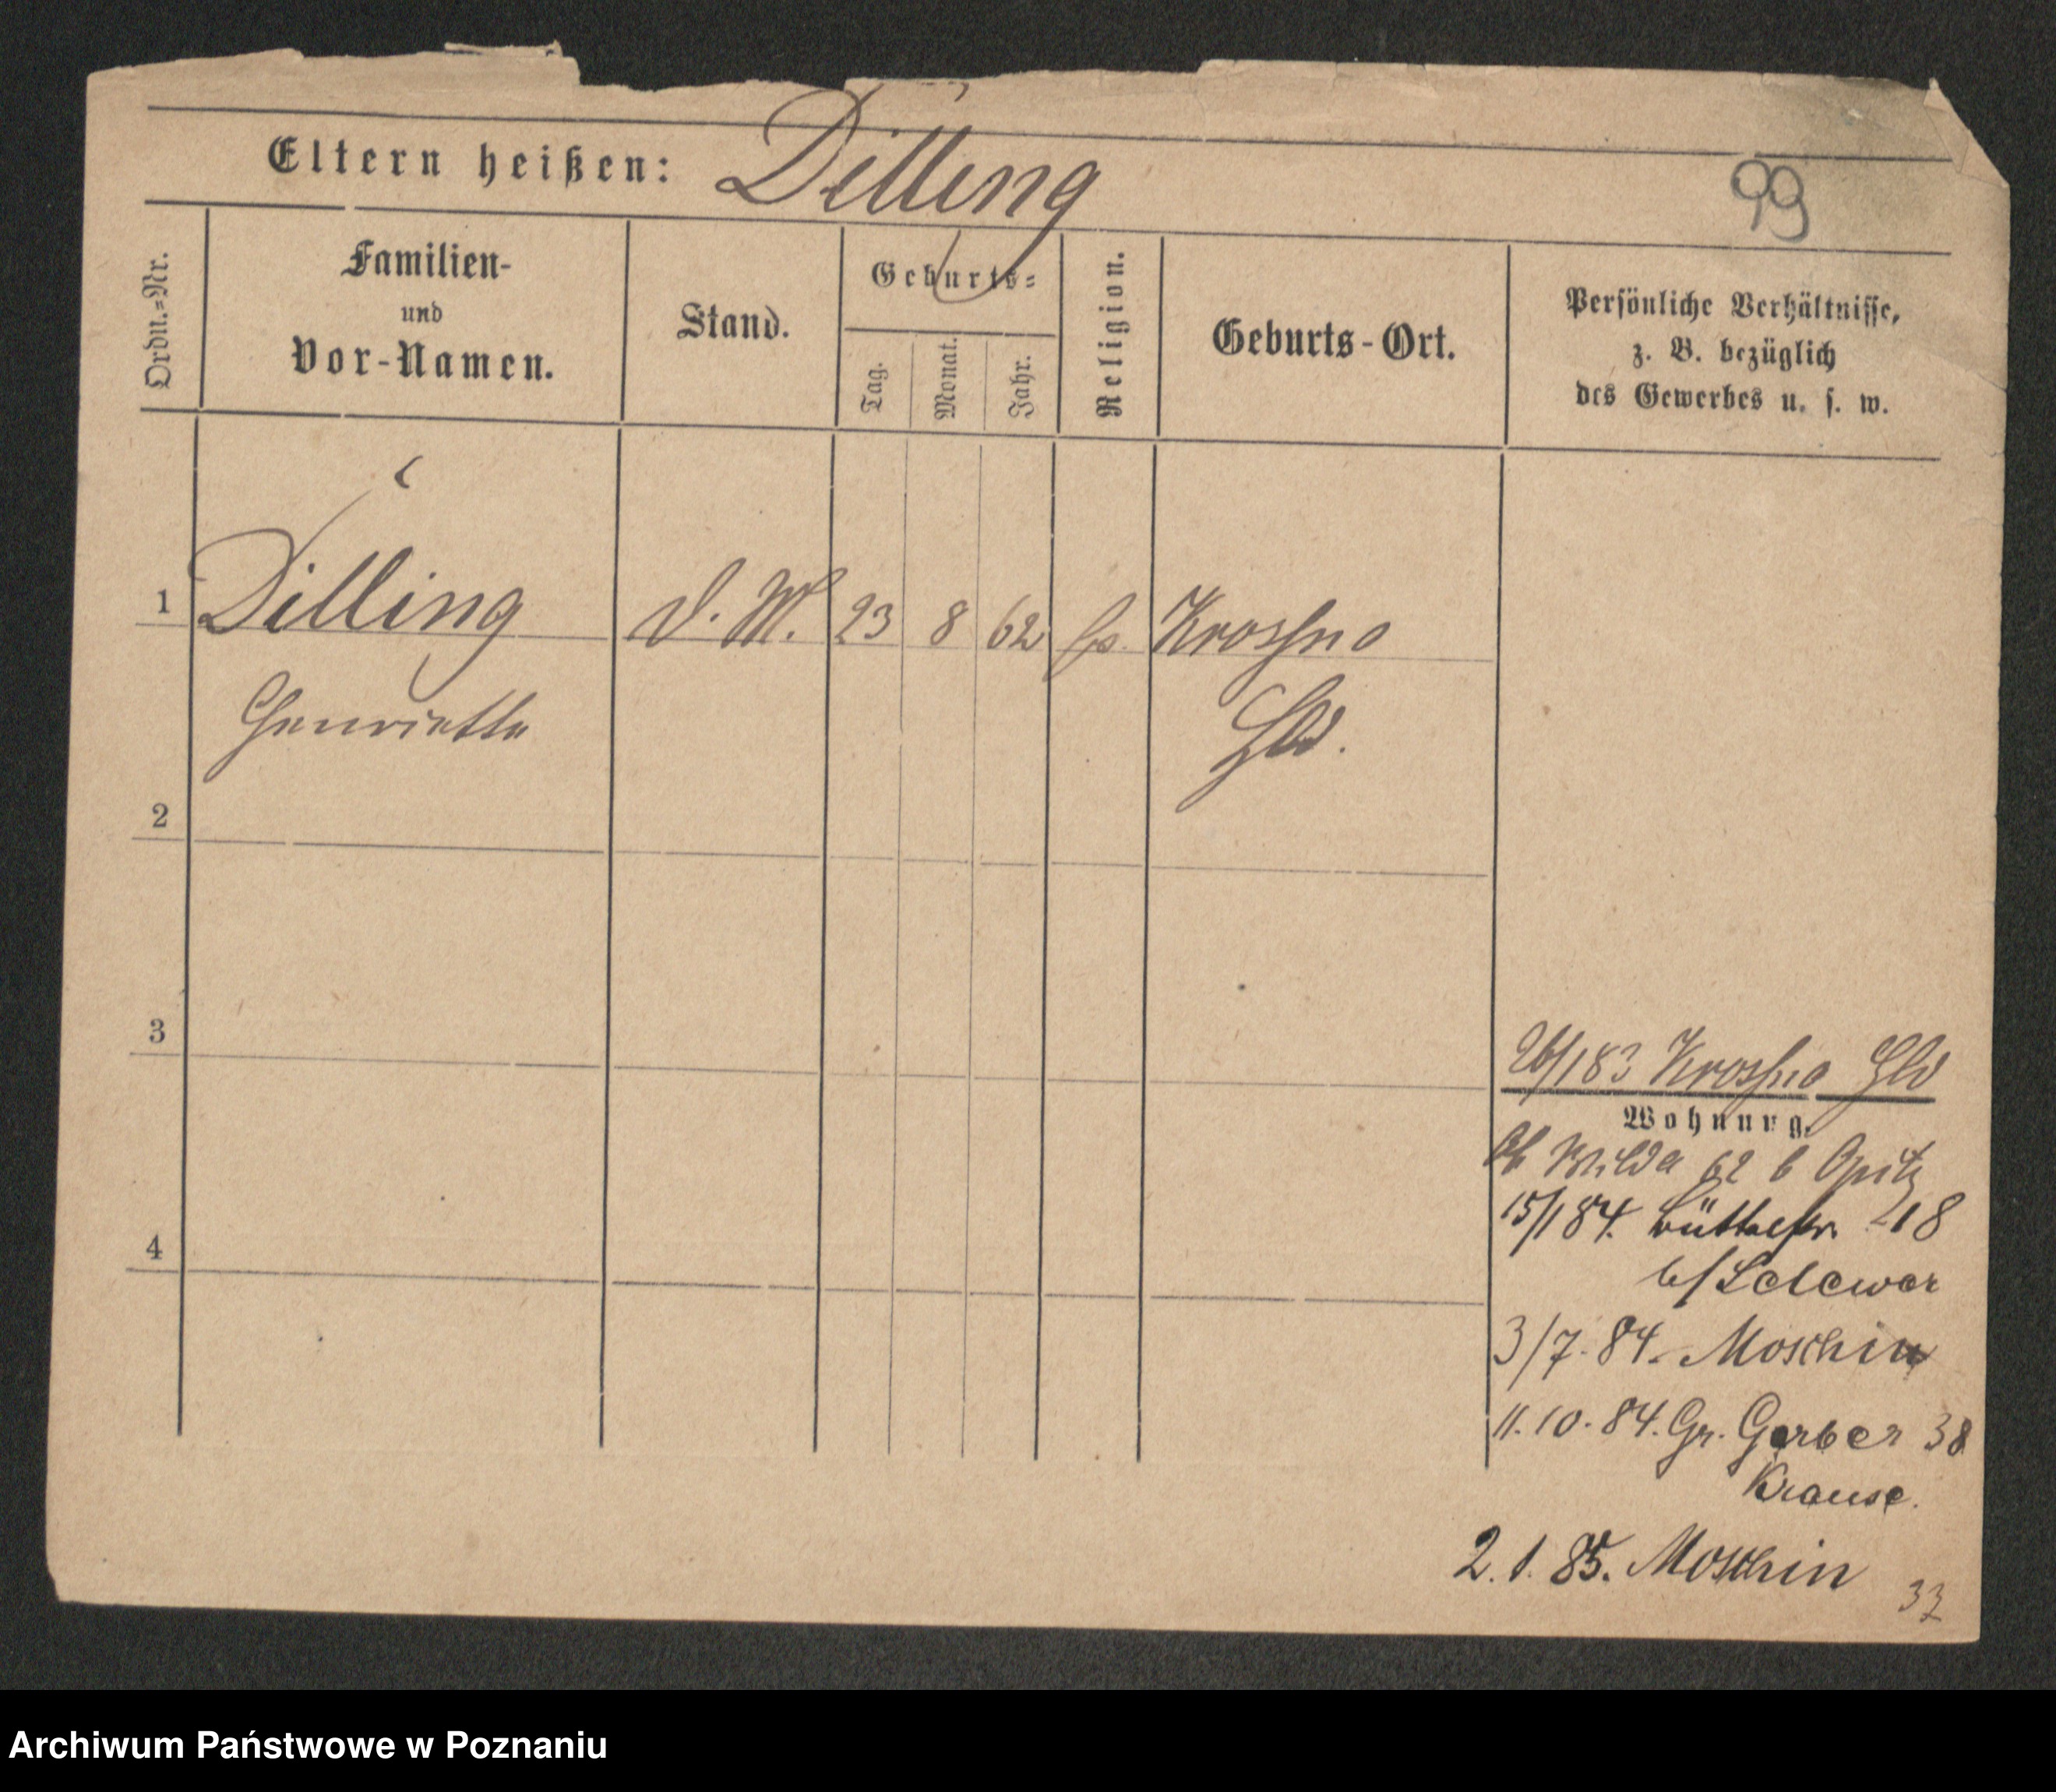 Eltern heißen: Dilling
99
Ordn.=Nr.
Familien-
und
Vor-Namen.
Stand.
Geburts=
Tag.
Monat.
Jahr.
Religion.
Geburts-Ort.
Persönliche Verhältnisse,
z. B. bezüglich
des Gewerbes u. s. w.
1 Dilling D. M. 23 8 62 Krossno
Henriette Hld.
2
3
4
26/1 83 Krossno Hld
Wohnung.
Wilda 62 b Opitz
15/1 84. Büttelstr. 18
b/ Lelewer
3/7. 84. Moschin
11. 10. 84. Gr. Gerber 38
Krause.
2. 1. 85. Moschin
33
Archiwum Państwowe w Poznaniu